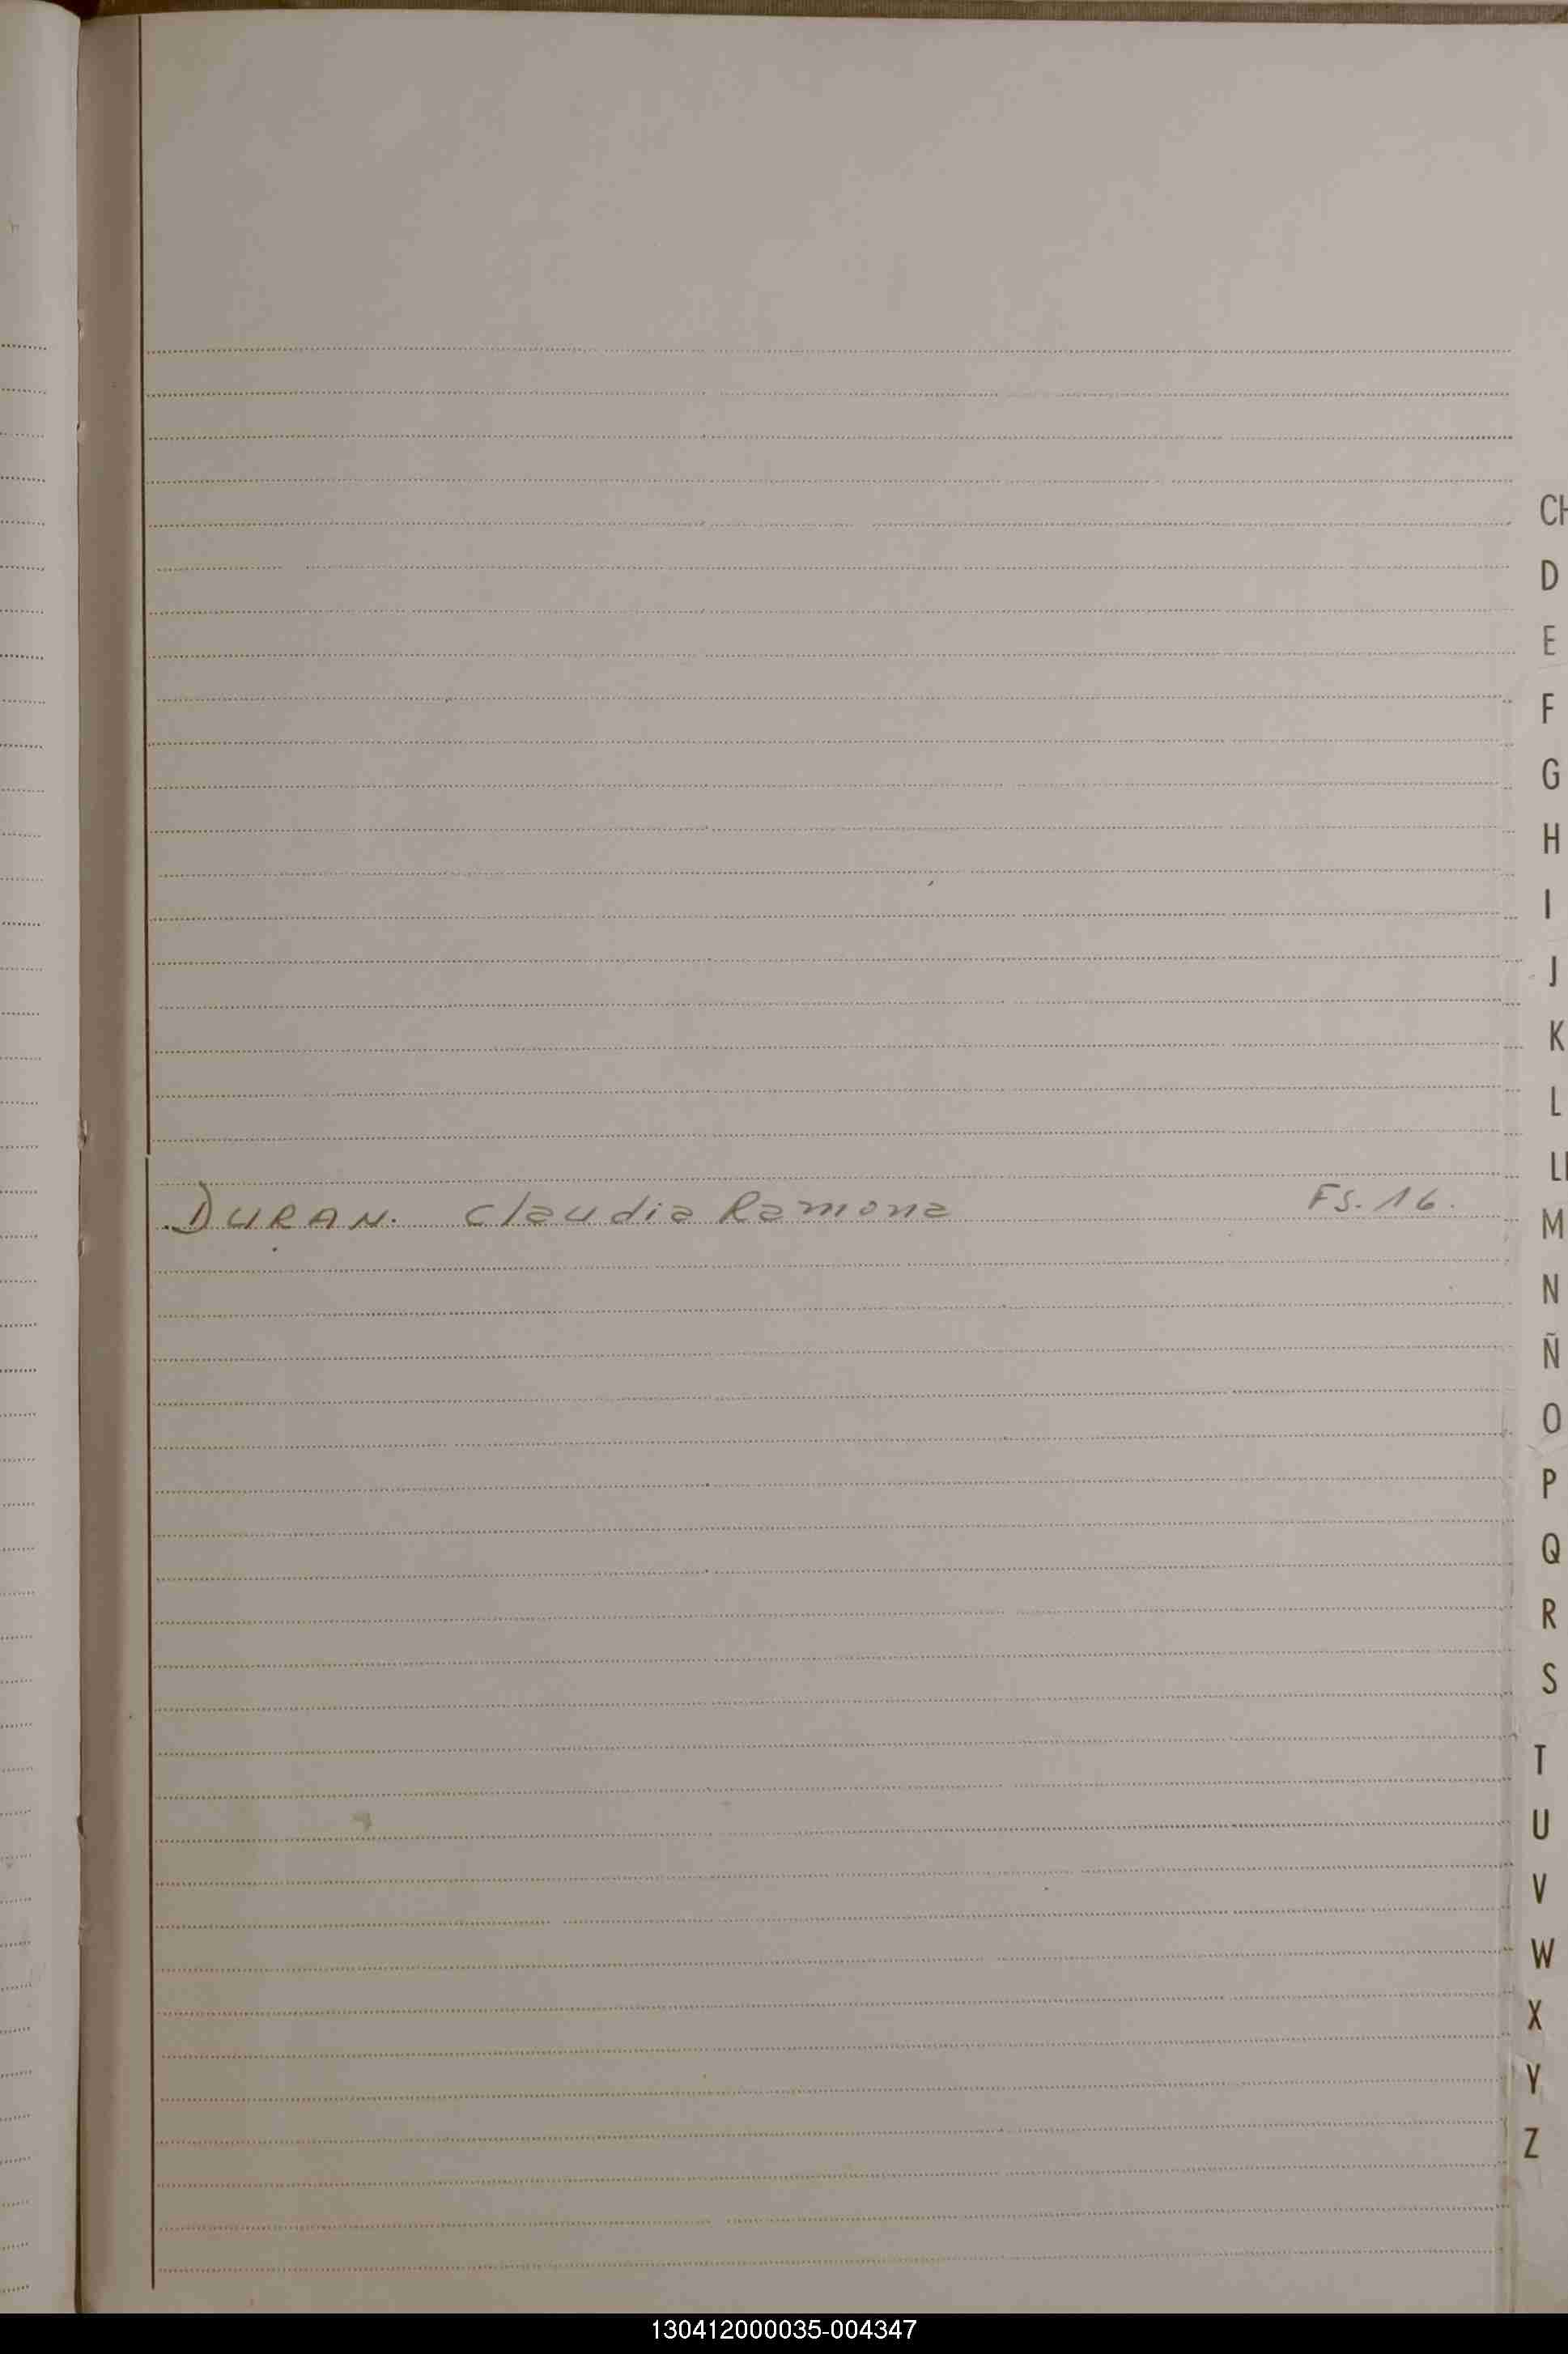 CH
D
E
F
G
H
I
J
K
L
Ll
DURAN. Claudia Ramona FS. 16.
M
N
Ñ
O
P
Q
R
S
T
U
V
W
X
Y
Z
130412000035-004347